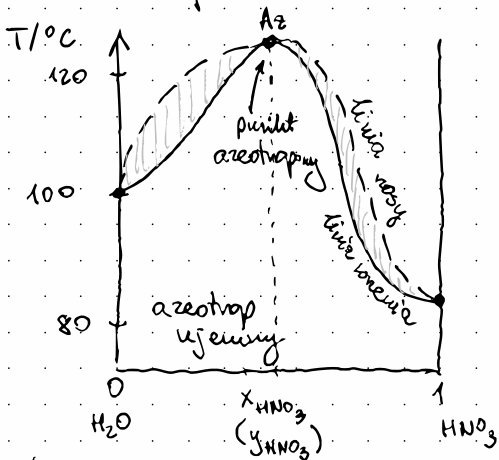 Az
T/°C
120
punkt
azeotropowy
linia rosy
100
linia wrzenia
80
azeotrop
ujemny
0
1
H₂O
x HNO₃
(y HNO₃)
HNO₃